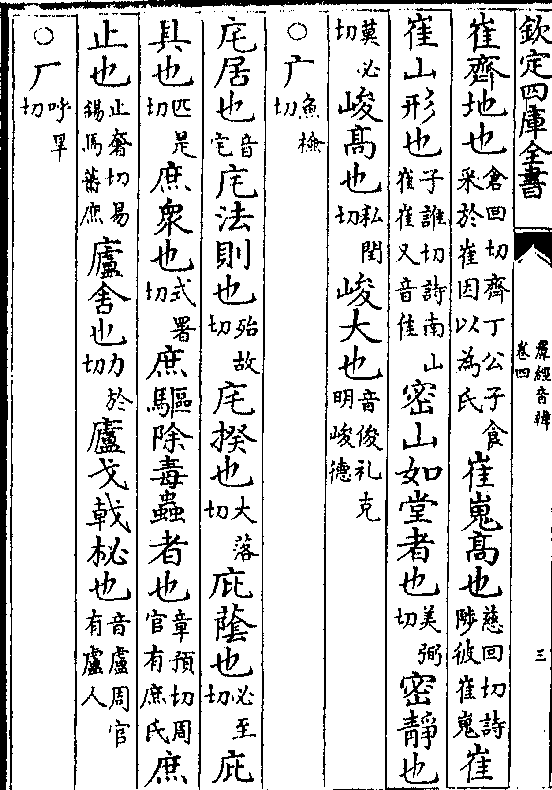 欽定四庫全書 羣經音辨 卷四 三
崔齊地也倉回切齊丁公子食采於崔因以為氏崔嵬髙也慈回切詩陟彼崔嵬崔
崔山形也子誰切詩南山崔崔又音佳密山如堂者也美弼切密靜也
莫必切峻髙也私閏切峻大也音俊礼克明峻德
○广魚檢切
㡯居也音宅㡯法則也殆故切㡯揆也大落切庇蔭也必至切庇
具也匹是切庶衆也式署切庶驅除毒蟲者也章預切周官有庶氏庶
止也止奢切易錫馬蕃庶廬舍也力於切廬戈戟柲也音盧周官有廬人
○厂呼旱切